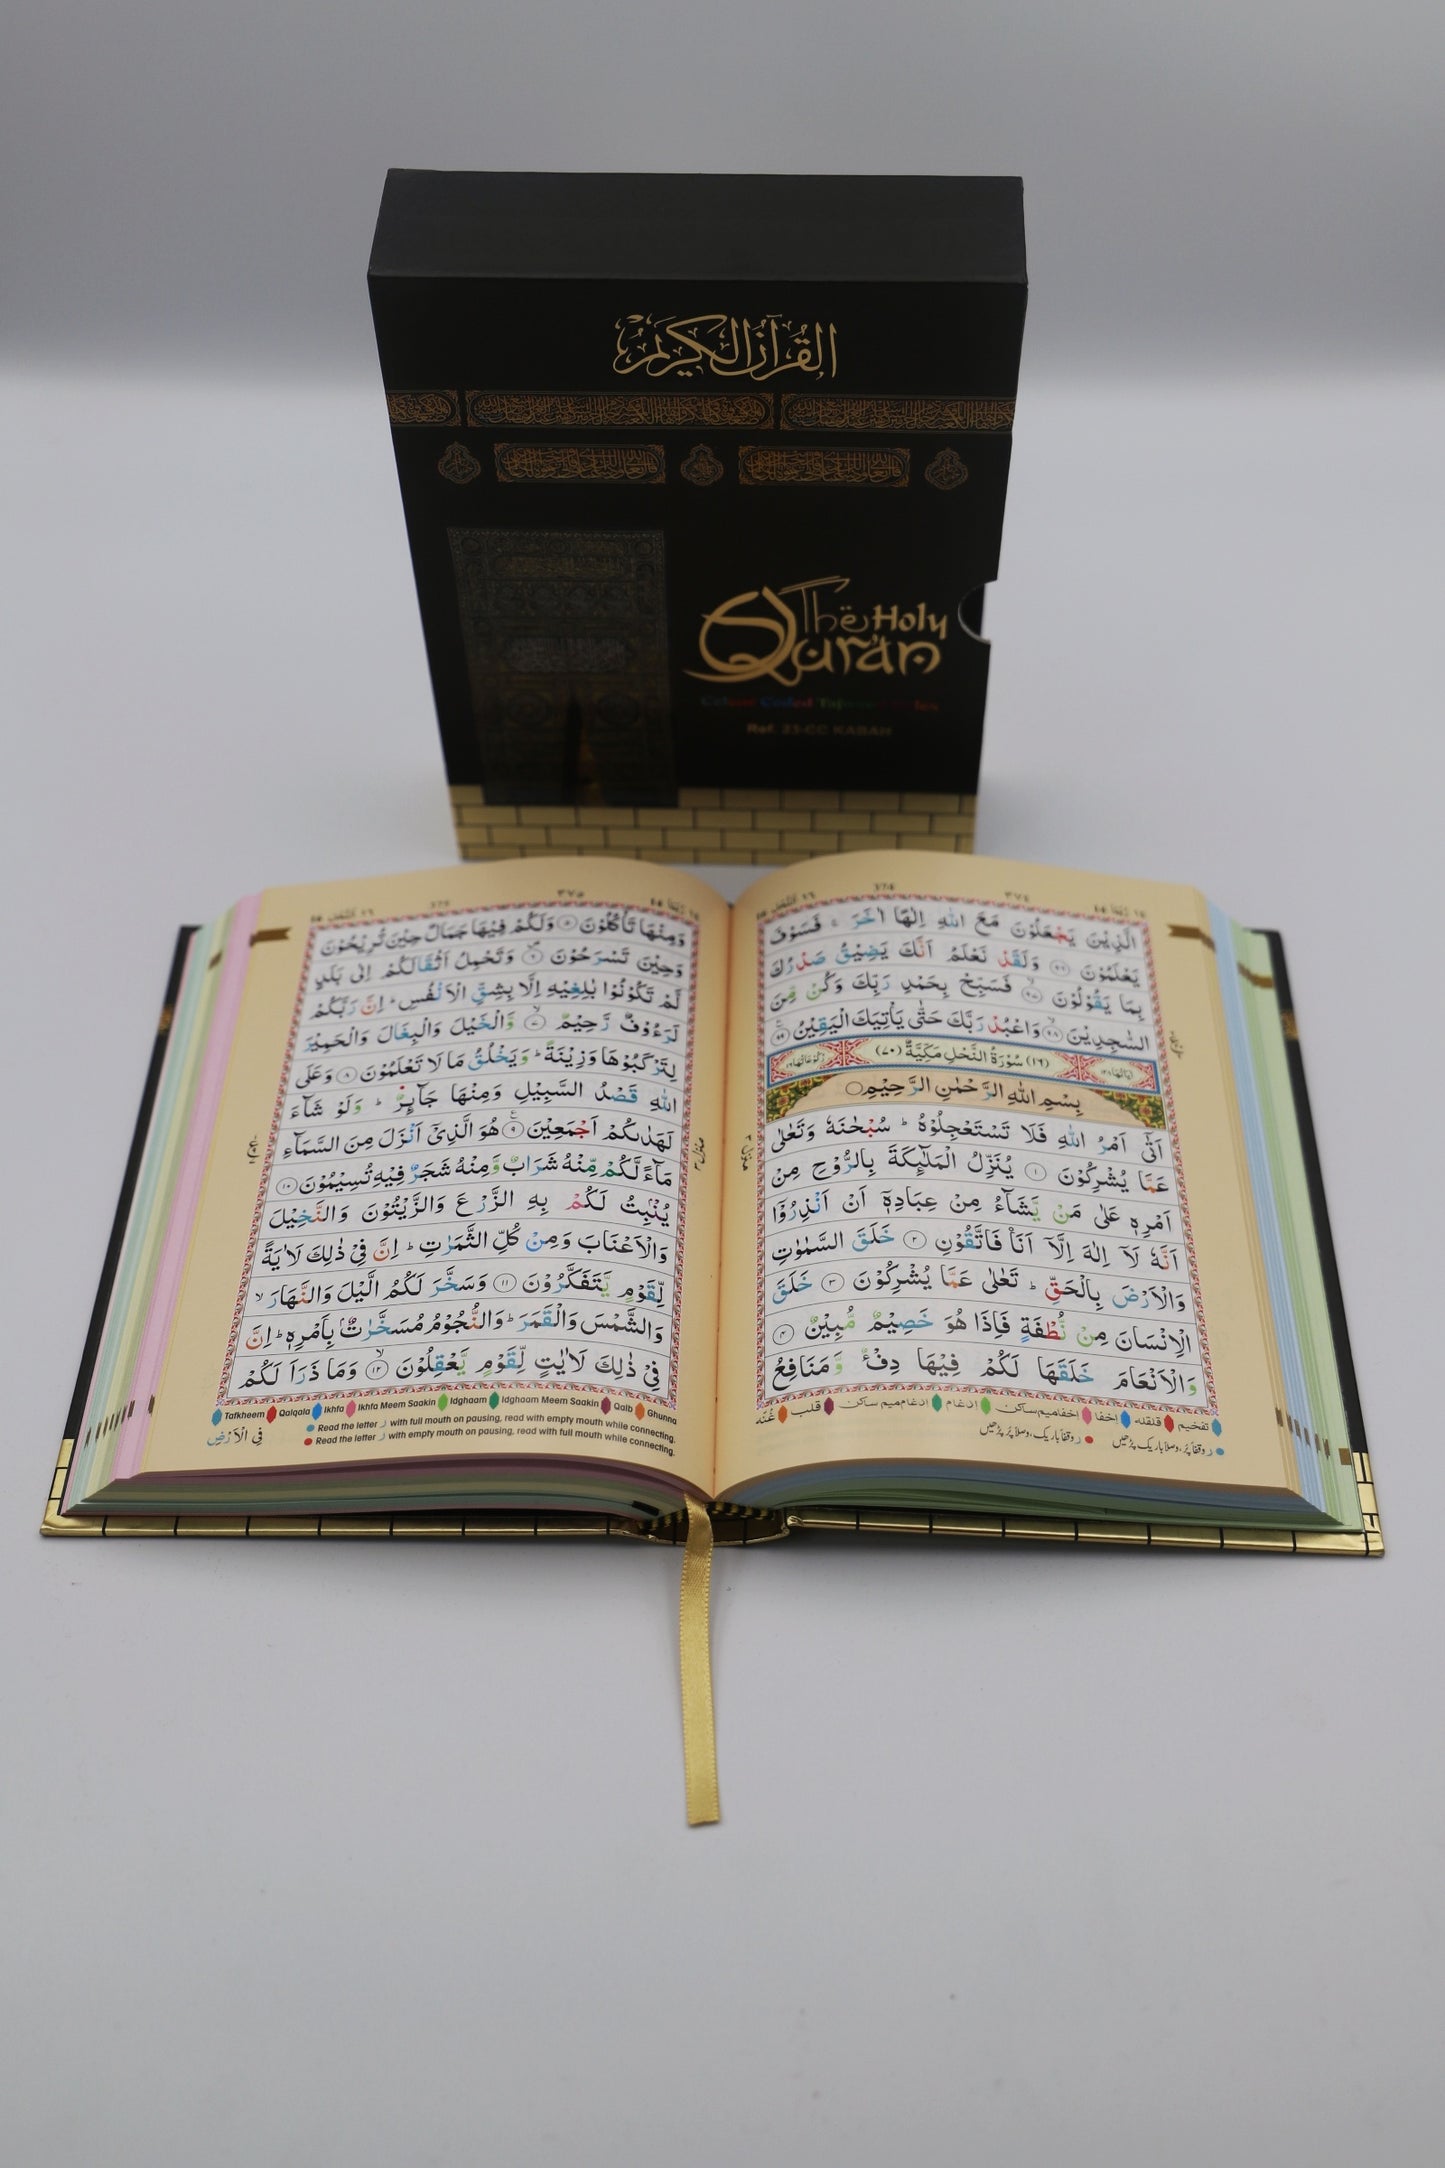 القرآن الكريم
The Holy
Qur'an
Colour Coded Tajweed Rules
Ref. 23-CC KABAH
٣٧٤
374
الَّذِيْنَ يَجْعَلُوْنَ مَعَ اللّٰهِ اِلٰهًا اٰخَرَ ۚ فَسَوْفَ
يَعْلَمُوْنَ ﴿٩٦﴾ وَلَقَدْ نَعْلَمُ اَنَّكَ يَضِيْقُ صَدْرُكَ
بِمَا يَقُوْلُوْنَ ﴿٩٧﴾ فَسَبِّحْ بِحَمْدِ رَبِّكَ وَكُنْ مِّنَ
السّٰجِدِيْنَ ﴿٩٨﴾ وَاعْبُدْ رَبَّكَ حَتّٰى يَاْتِيَكَ الْيَقِيْنُ ﴿٩٩﴾
(١٦) سُوْرَةُ النَّحْلِ مَكِّيَّةٌ (٧٠)
بِسْمِ اللّٰهِ الرَّحْمٰنِ الرَّحِيْمِ
اَتٰٓى اَمْرُ اللّٰهِ فَلَا تَسْتَعْجِلُوْهُ ؕ سُبْحٰنَهٗ وَتَعٰلٰى
عَمَّا يُشْرِكُوْنَ ﴿١﴾ يُنَزِّلُ الْمَلٰٓئِكَةَ بِالرُّوْحِ مِنْ
اَمْرِهٖ عَلٰى مَنْ يَّشَآءُ مِنْ عِبَادِهٖٓ اَنْ اَنْذِرُوْٓا
اَنَّهٗ لَآ اِلٰهَ اِلَّآ اَنَا فَاتَّقُوْنِ ﴿٢﴾ خَلَقَ السَّمٰوٰتِ
وَالْاَرْضَ بِالْحَقِّ ؕ تَعٰلٰى عَمَّا يُشْرِكُوْنَ ﴿٣﴾ خَلَقَ
الْاِنْسَانَ مِنْ نُّطْفَةٍ فَاِذَا هُوَ خَصِيْمٌ مُّبِيْنٌ ﴿٤﴾
وَالْاَنْعَامَ خَلَقَهَا لَكُمْ فِيْهَا دِفْءٌ وَّمَنَافِعُ
تفخیم قلقلہ اخفا اخفا میم ساکن ادغام ادغام میم ساکن قلب غُنّہ
ر وقفاً پُر، وصلاً باریک پڑھیں ر وقفاً باریک، وصلاً پر پڑھیں
٣٧٥
375
وَمِنْهَا تَاْكُلُوْنَ ﴿٥﴾ وَلَكُمْ فِيْهَا جَمَالٌ حِيْنَ تُرِيْحُوْنَ
وَحِيْنَ تَسْرَحُوْنَ ﴿٦﴾ وَتَحْمِلُ اَثْقَالَكُمْ اِلٰى بَلَدٍ
لَّمْ تَكُوْنُوْا بٰلِغِيْهِ اِلَّا بِشِقِّ الْاَنْفُسِ ؕ اِنَّ رَبَّكُمْ
لَرَءُوْفٌ رَّحِيْمٌ ﴿٧﴾ وَّالْخَيْلَ وَالْبِغَالَ وَالْحَمِيْرَ
لِتَرْكَبُوْهَا وَزِيْنَةً ؕ وَيَخْلُقُ مَا لَا تَعْلَمُوْنَ ﴿٨﴾ وَعَلَى
اللّٰهِ قَصْدُ السَّبِيْلِ وَمِنْهَا جَآئِرٌ ؕ وَلَوْ شَآءَ
لَهَدٰىكُمْ اَجْمَعِيْنَ ﴿٩﴾ هُوَ الَّذِيْٓ اَنْزَلَ مِنَ السَّمَآءِ
مَآءً لَّكُمْ مِّنْهُ شَرَابٌ وَّمِنْهُ شَجَرٌ فِيْهِ تُسِيْمُوْنَ ﴿١٠﴾
يُنْۢبِتُ لَكُمْ بِهِ الزَّرْعَ وَالزَّيْتُوْنَ وَالنَّخِيْلَ
وَالْاَعْنَابَ وَمِنْ كُلِّ الثَّمَرٰتِ ؕ اِنَّ فِيْ ذٰلِكَ لَاٰيَةً
لِّقَوْمٍ يَّتَفَكَّرُوْنَ ﴿١١﴾ وَسَخَّرَ لَكُمُ الَّيْلَ وَالنَّهَارَ ۙ
وَالشَّمْسَ وَالْقَمَرَ ؕ وَالنُّجُوْمُ مُسَخَّرٰتٌۢ بِاَمْرِهٖ ؕ اِنَّ
فِيْ ذٰلِكَ لَاٰيٰتٍ لِّقَوْمٍ يَّعْقِلُوْنَ ﴿١٢﴾ وَمَا ذَرَاَ لَكُمْ
Tafkheem Qalqala Ikhfa Ikhfa Meem Saakin Idghaam Idghaam Meem Saakin Qalb Ghunna
Read the letter ر with full mouth on pausing, read with empty mouth while connecting.
Read the letter ر with empty mouth on pausing, read with full mouth while connecting.
فِي الْاَرْضِ